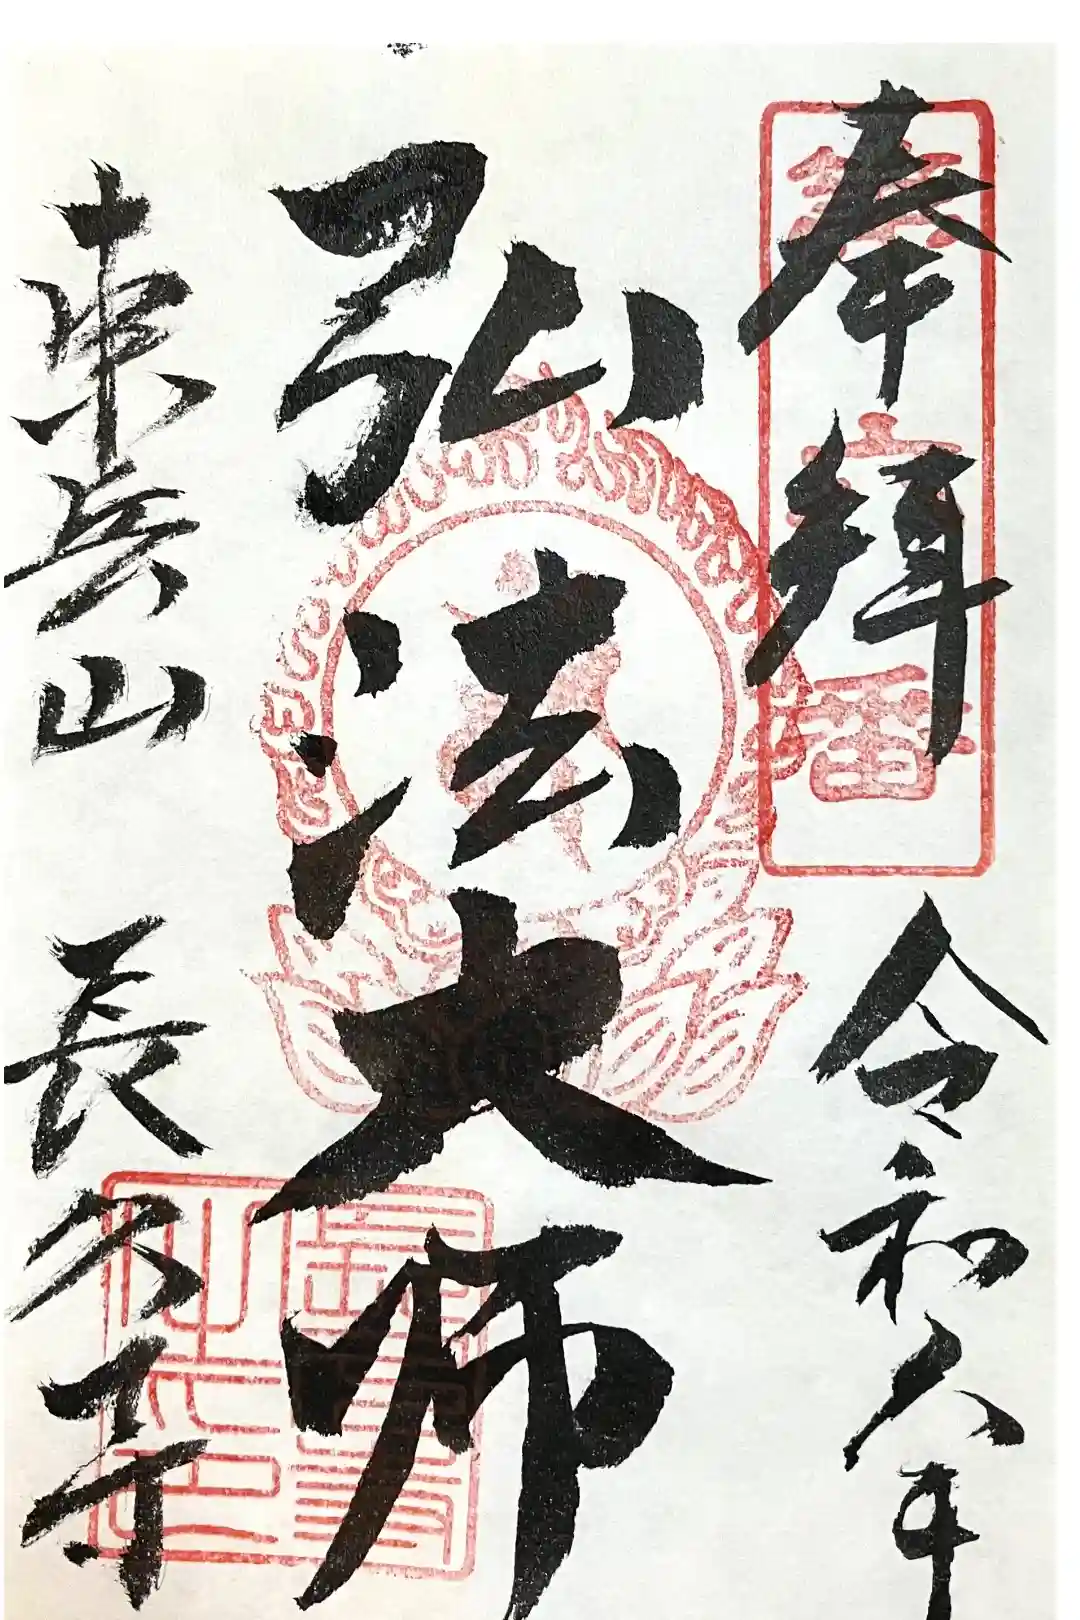 奉拝 令和八年
弘法大師
東岳山 長久寺